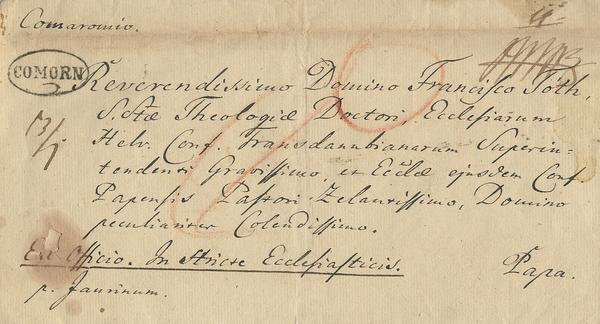 Comaromio.
COMORN
Reverendissimo Domino Francisco Tóth,
S. ctæ Theologiæ Doctori, Ecclesiarum
Helv. Conf. Transdanubianarum Superin-
tendenti Gravissimo, et Eccłæ ejusdem Conf.
Papensis Pastori Zelantissimo, Domino
peculiariter Colendissimo.
Ex Officio. In Stricte Ecclesiasticis.
Papa.
p. Jaurinum.